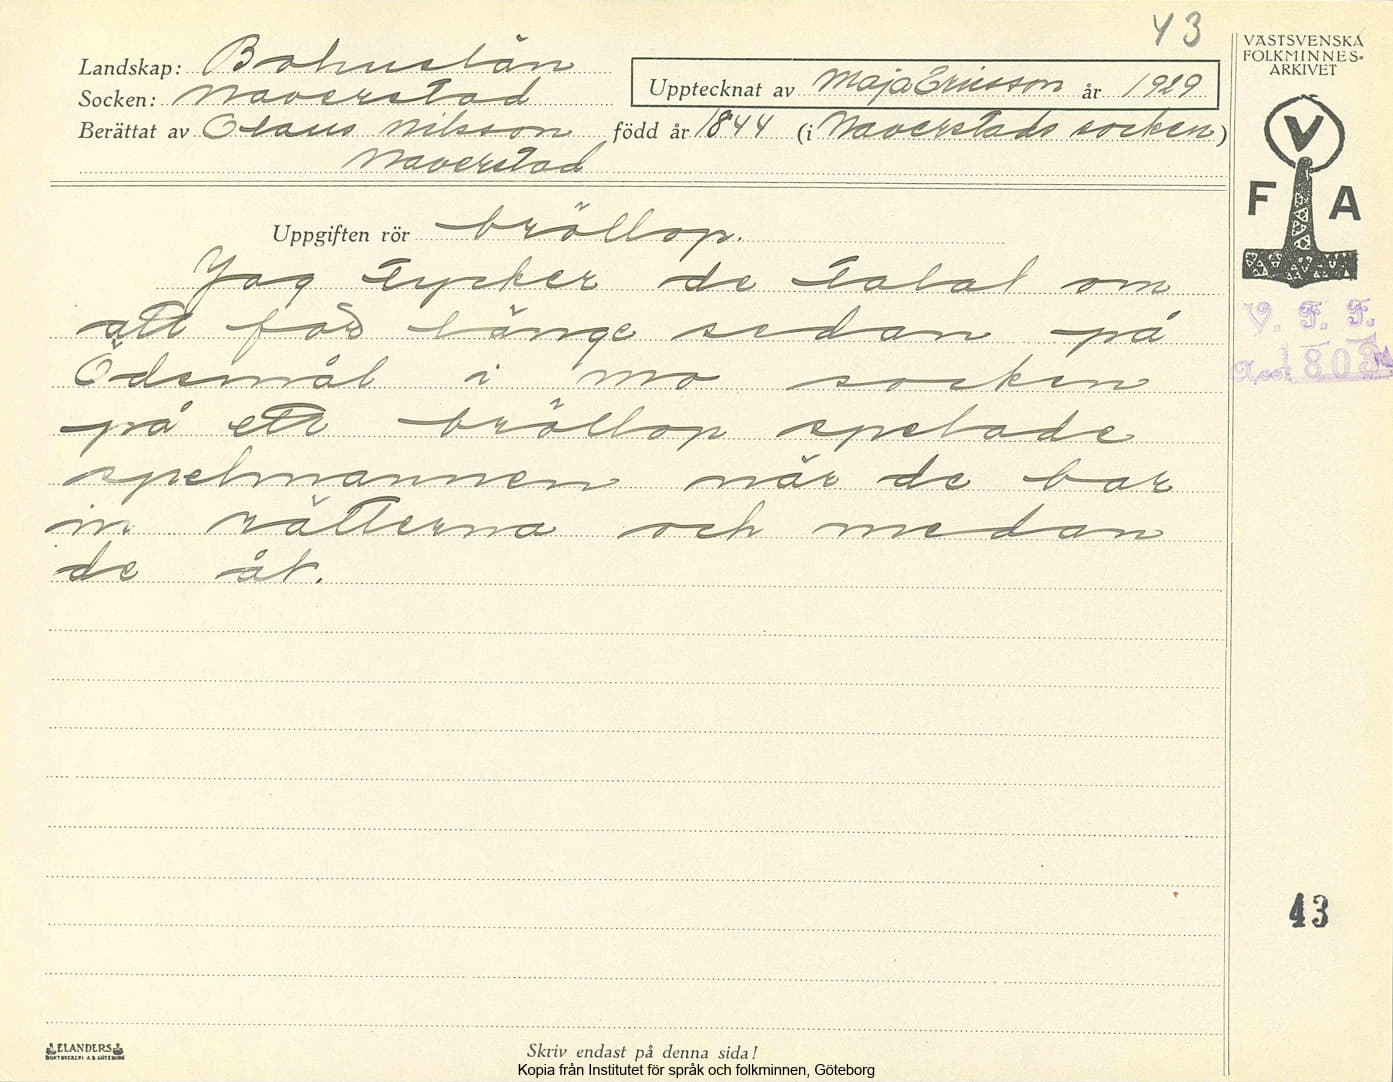 43
Landskap: Bohuslän
Socken: Naverstad
Upptecknat av Maja Ericsson år 1929
Berättat av Olaus Nilsson född år 1844 (i Naverstads socken)
Naverstad
VÄSTSVENSKA
FOLKMINNES-
ARKIVET
V
F A
V. F. F.
Acc. 1803
Uppgiften rör bröllop.
Jag tycker de talal om
att för länge sedan på
Ödsmål i mo socken
på ett bröllop spelade
spelmannen när de bar
in rätterna och medan
de åt.
43
ELANDERS
BOKTRYCKERI A.B. GÖTEBORG
Skriv endast på denna sida!
Kopia från Institutet för språk och folkminnen, Göteborg